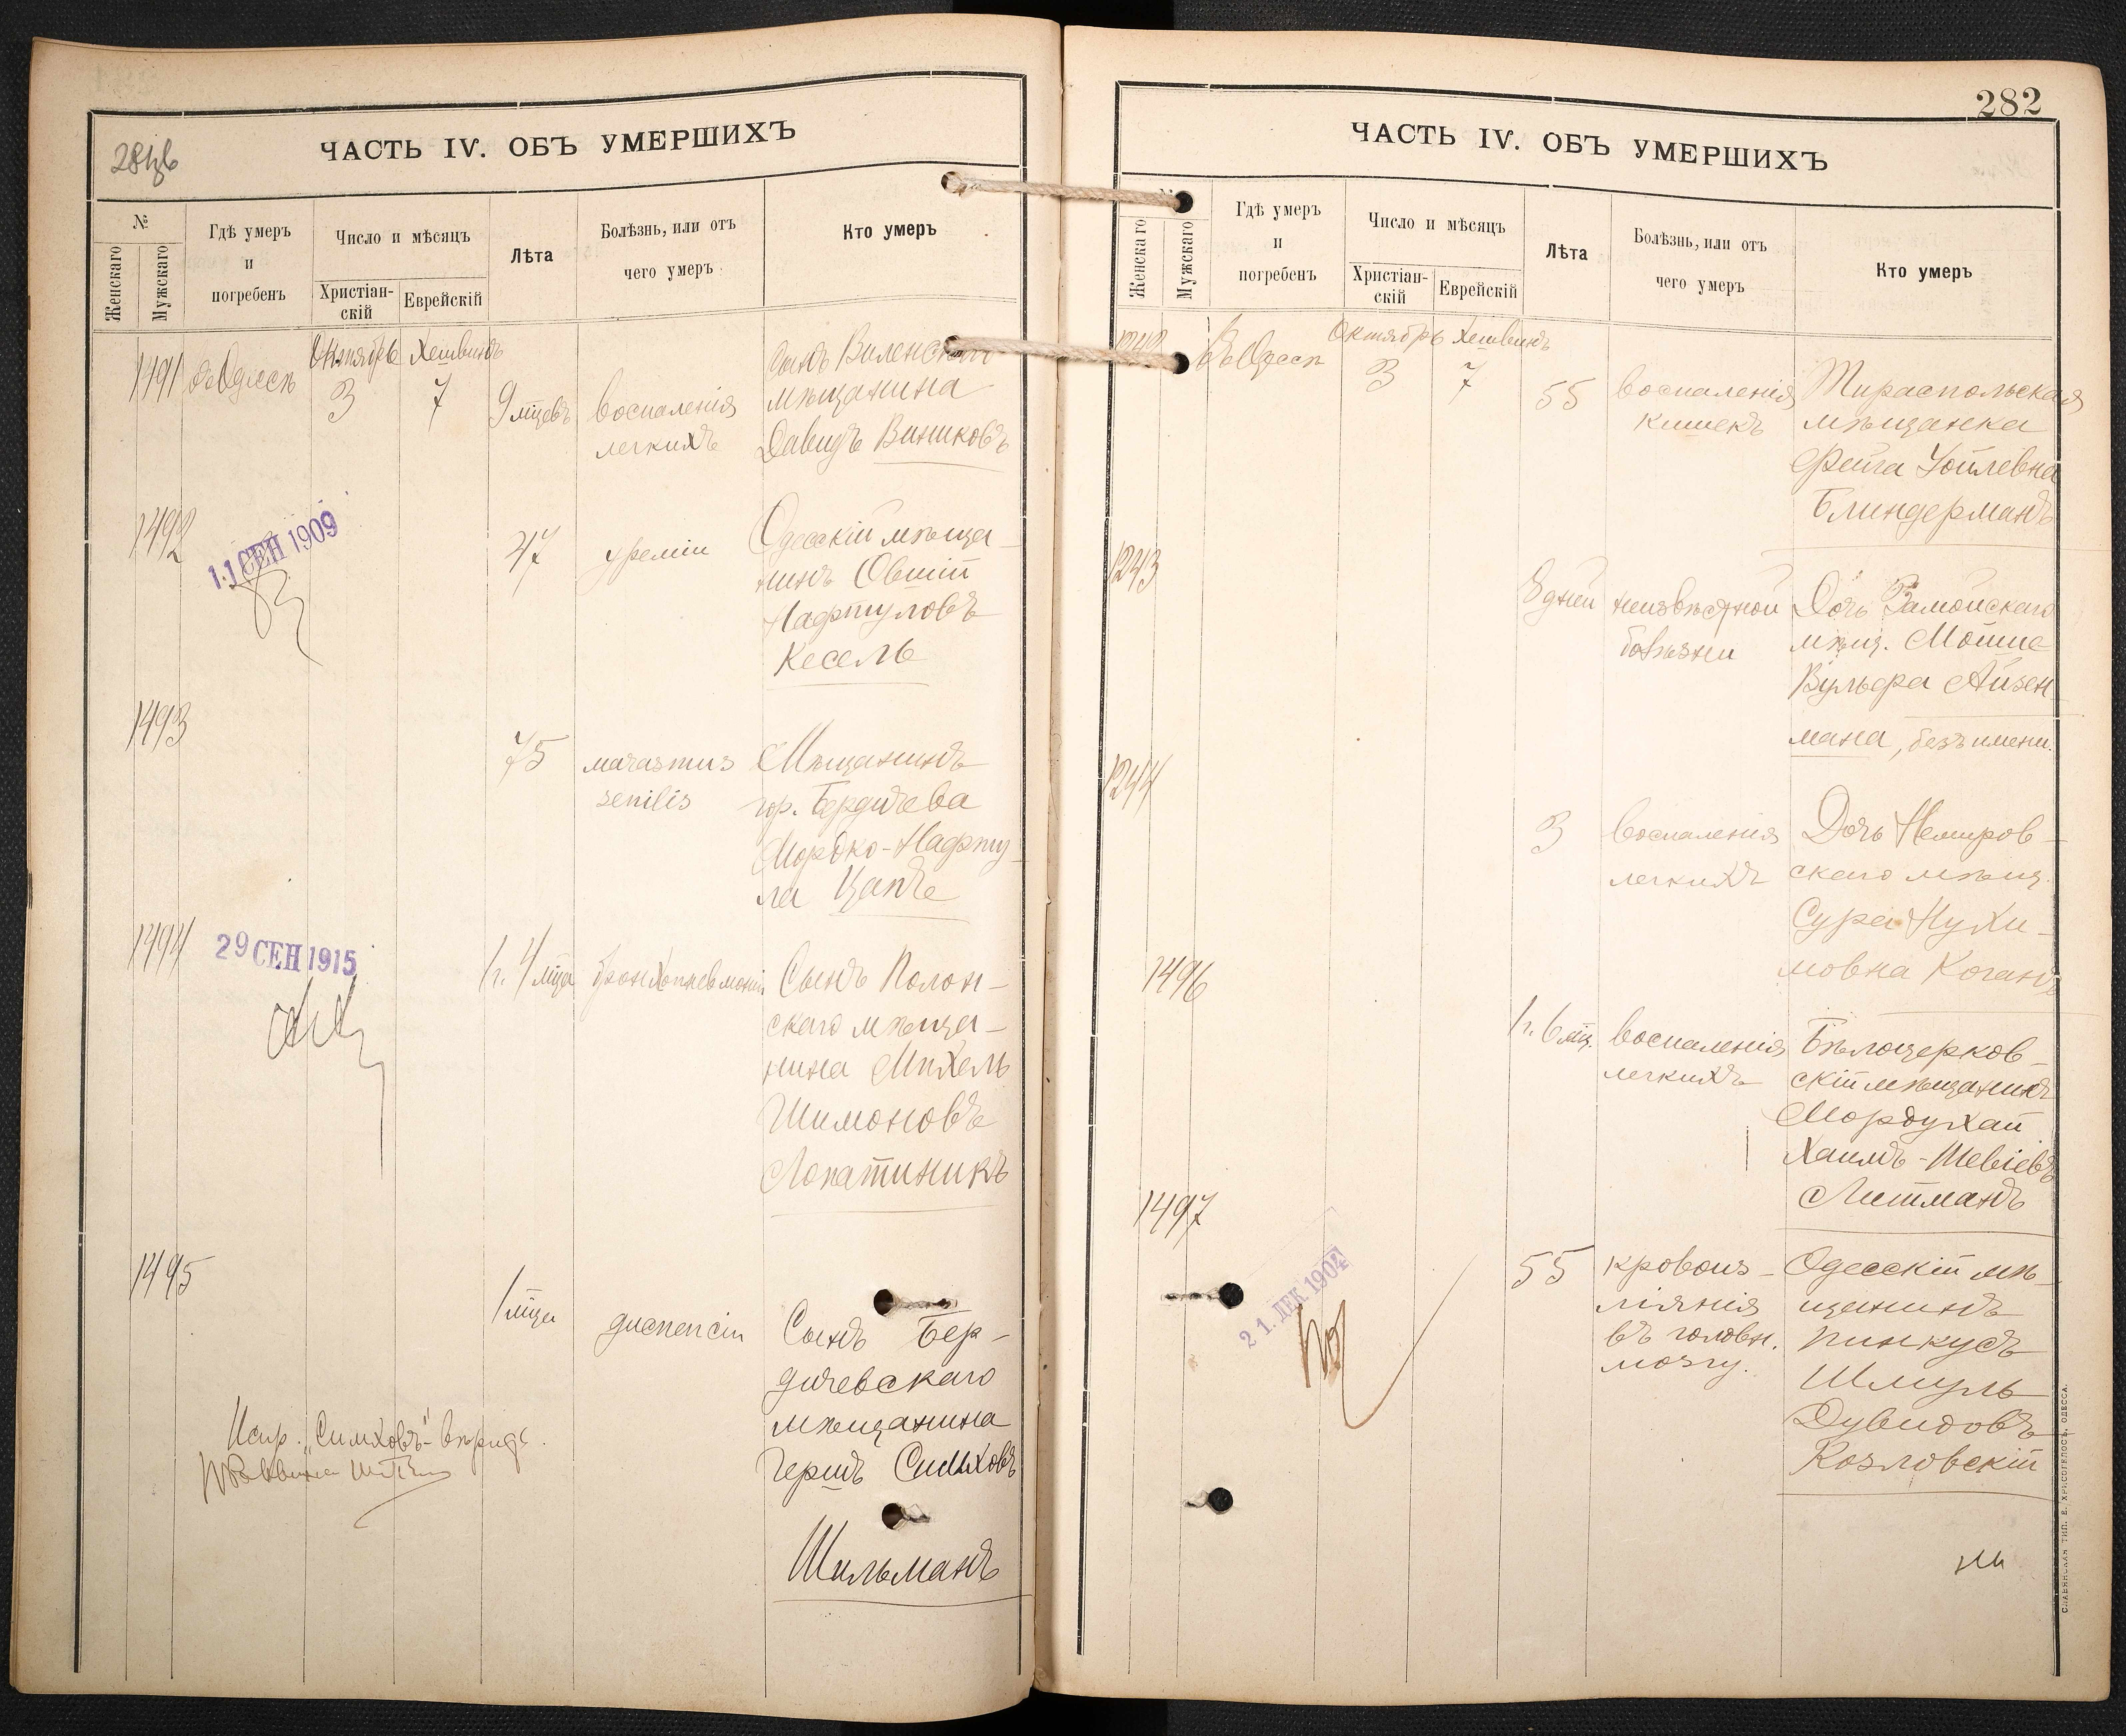 ЧАСТЬ IV. ОБЪ УМЕРШИХЪ
№
Женскаго
Мужскаго
Гдѣ умеръ
и
погребенъ
Число и мѣсяцъ
Христіан-
скій
Еврейскій
Лѣта
Болѣзнь, или отъ
чего умеръ
Кто умеръ
1491
въ Одессѣ
Октябрь Хешвинъ
3 7
9 мцевъ
воспаленія
легкихъ
Сынъ Виленскаго
мѣщанина
Давидъ Винниковъ
1492
11 СЕН 1909
47
уреміи
Одесскій мѣща-
нинъ Овшій
Нафтуловъ
Кесель
1493
75
marasmus
senilis
Мѣщанинъ
гор. Бердичева
Мордко-Нафту-
ла Цапъ
1494
29 СЕН 1915
1 г. 4 мца
бронхопневмоніи
Сынъ Полон-
скаго мѣща-
нина Михель
Шимоновъ
Лопатникъ
1495
1 мца
диспепсіи
Сынъ Бер-
дичевскаго
мѣщанина
Гершъ Симховъ
Шильманъ
Испр. „Симховъ“ - вѣрно
282
ЧАСТЬ IV. ОБЪ УМЕРШИХЪ
№
Женскаго
Мужскаго
Гдѣ умеръ
и
погребенъ
Число и мѣсяцъ
Христіан-
скій
Еврейскій
Лѣта
Болѣзнь, или отъ
чего умеръ
Кто умеръ
1242
Въ Одессѣ
Октябрь Хешвинъ
3 7
55
воспаленія
кишекъ
Тираспольская
мѣщанка
Фейга Іойлевна
Блиндерманъ
1243
8 дней
неизвѣстной
болѣзни
Дочь Замойскаго
мѣщ. Мошие
Вульфа Айзен
мана, безъ имени.
1244
3
воспаленія
легкихъ
Дочь Немиров-
скаго мѣщ.
Сура Нухи-
мовна Коганъ
1496
1 г. 6 мц.
воспаленія
легкихъ
Бѣлоцерков-
скій мѣщанинъ
Мордухай
Хаимъ-Шевіевъ
Литманъ
1497
21. ДЕК 1904
55
кровоиз-
ліянія
въ головн.
мозгу.
Одесскій мѣ-
щанинъ
Пинкусъ
Шмуль
Дувидовъ
Козловскій
СЛАВЯНСКАЯ ТИП. Е. ХРИСОГЕЛОСЪ, ОДЕССА.